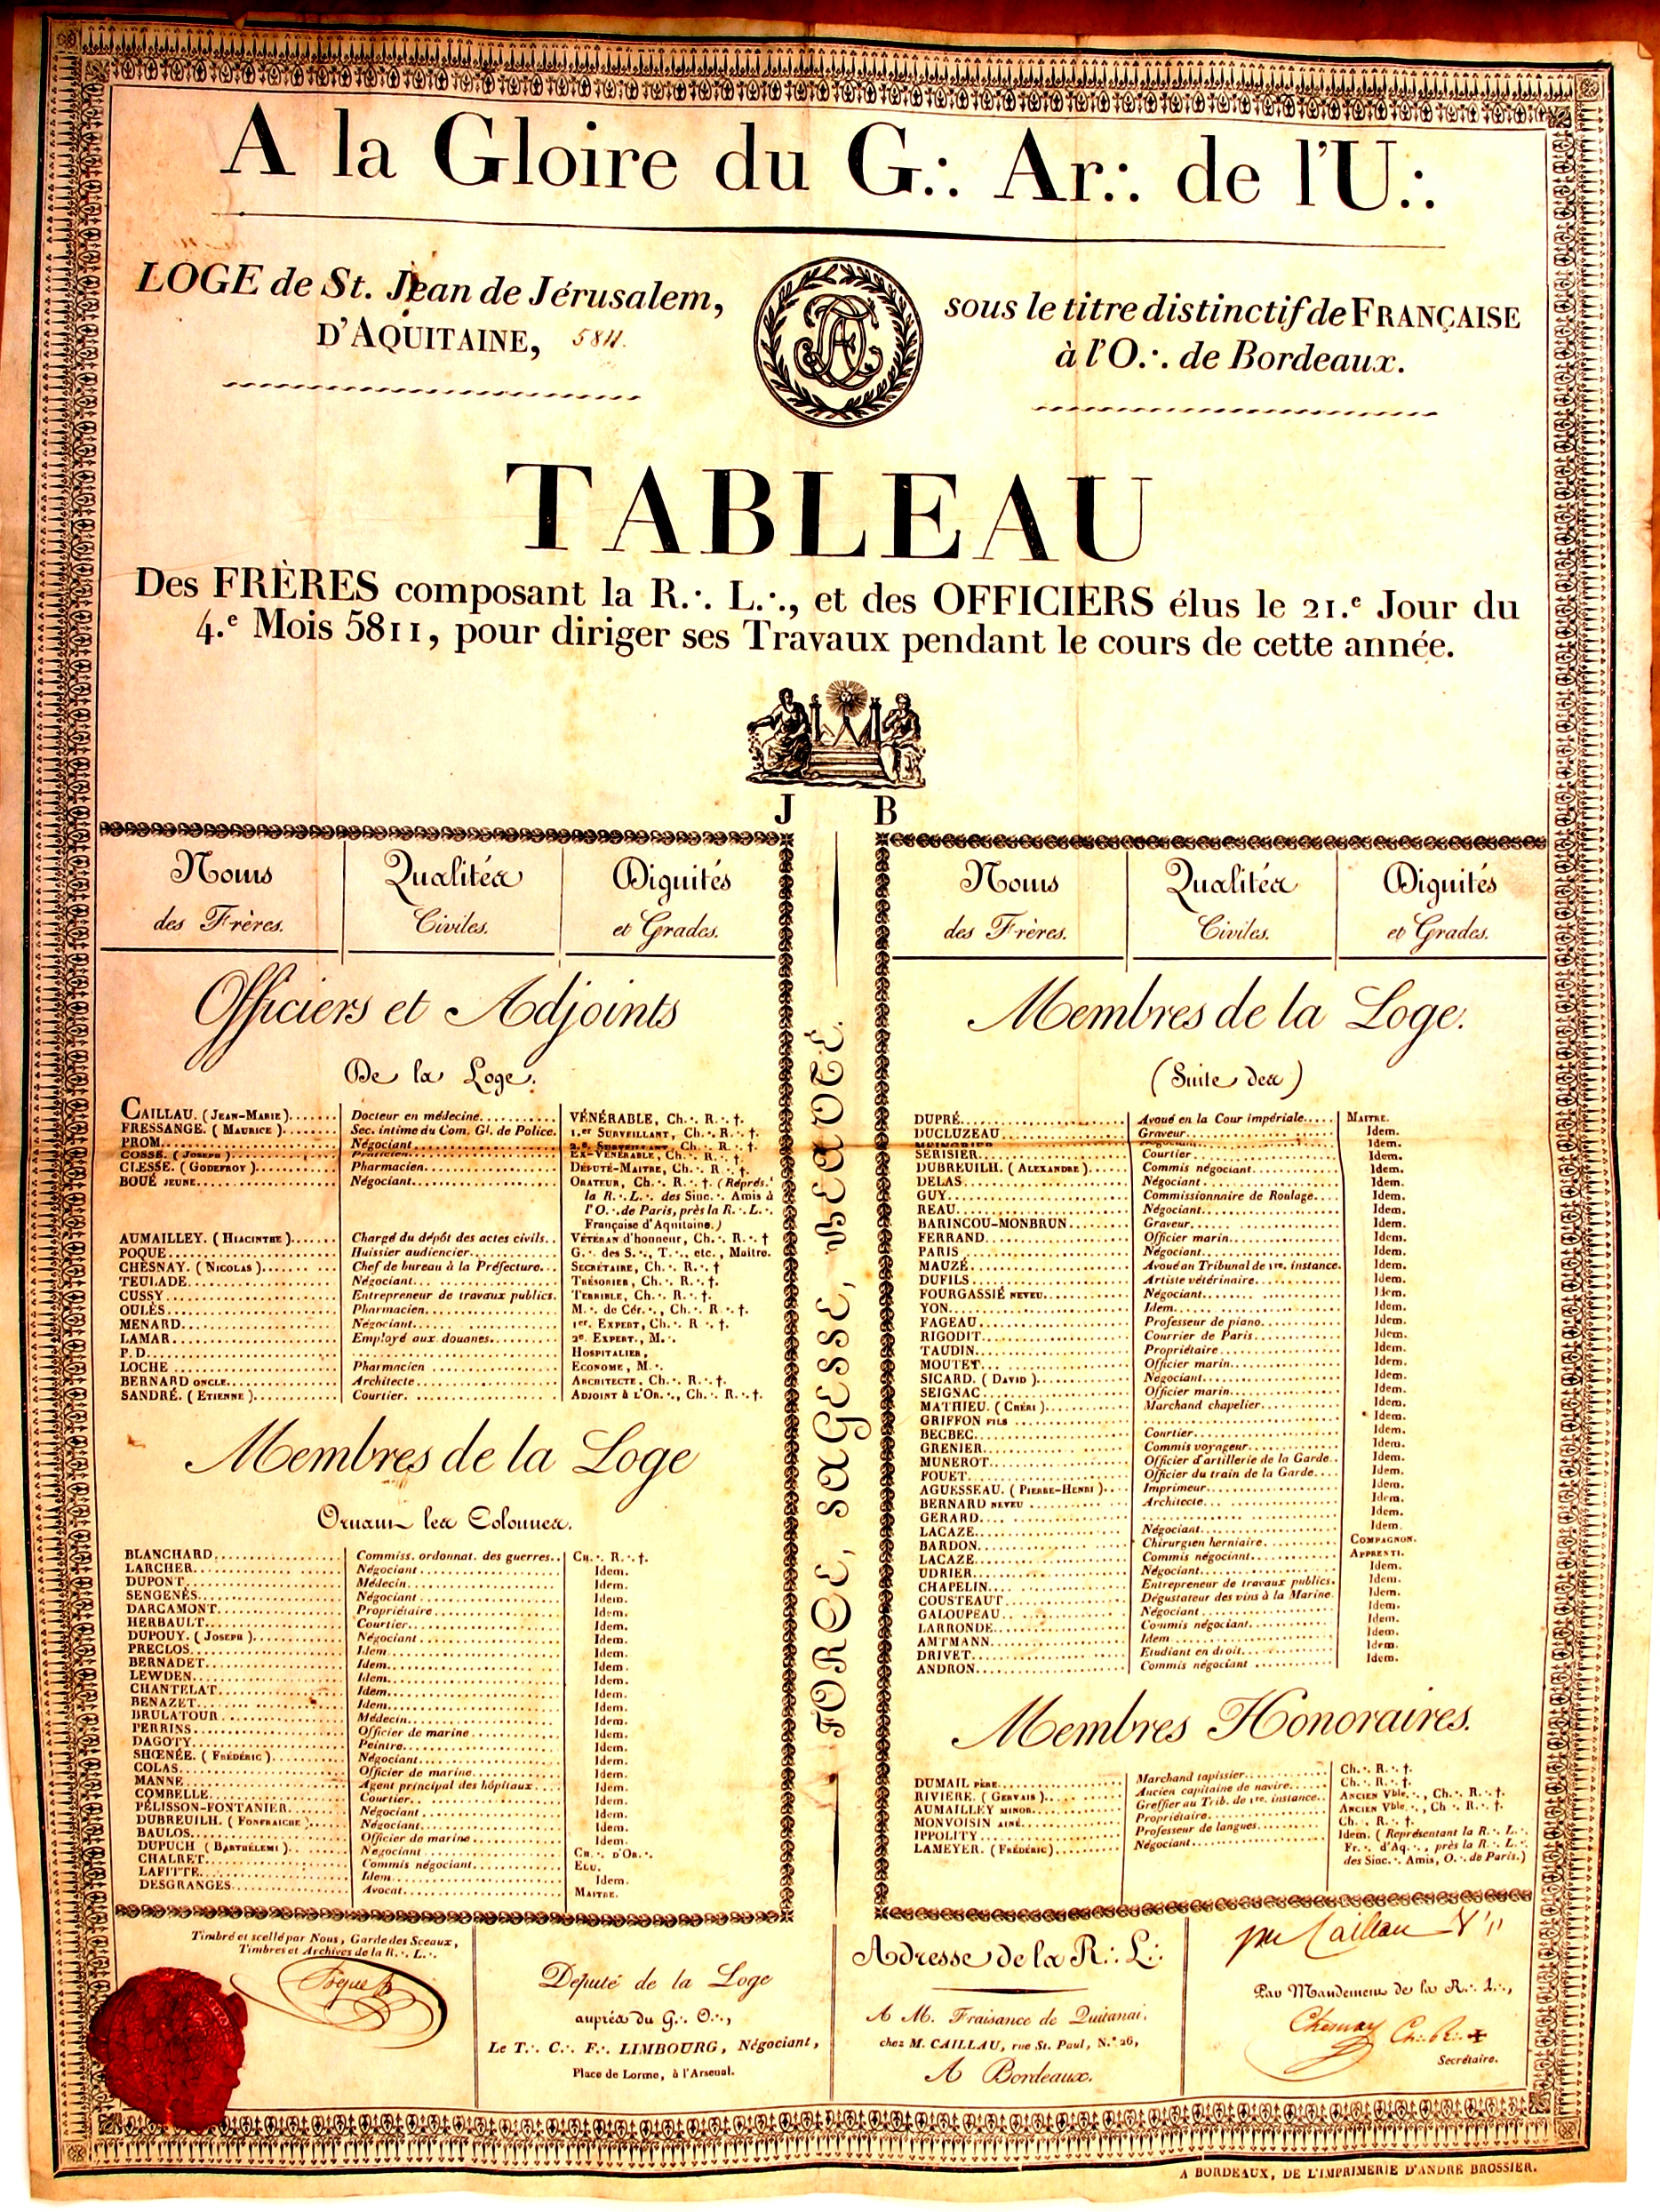 A la Gloire du G∴ Ar∴ de l'U∴
LOGE de St. Jean de Jérusalem,
D'AQUITAINE, 5811.
sous le titre distinctif de FRANÇAISE
à l'O∴ de Bordeaux.
TABLEAU
Des FRÈRES composant la R∴ L∴, et des OFFICIERS élus le 21.e Jour du
4.e Mois 5811, pour diriger ses Travaux pendant le cours de cette année.
J B
Noms des Frères. Qualités Civiles. Dignités et Grades.
Officiers et Adjoints
De la Loge.
CAILLAU. (JEAN-MARIE)....... Docteur en médecine........... VÉNÉRABLE, Ch∴ R∴ †.
FRESSANGE. (MAURICE)....... Sec. intime du Com. Gl. de Police. 1.er SURVEILLANT, Ch∴ R∴ †.
PROM....... Négociant....... 2.e SURVEILLANT, Ch∴ R∴ †.
COSSE. (JOSEPH)....... Praticien....... EX-VÉNÉRABLE, Ch∴ R∴ †.
CLESSE. (GODEFROY)....... Pharmacien....... DÉPUTÉ-MAITRE, Ch∴ R∴ †.
BOUÉ JEUNE....... Négociant....... ORATEUR, Ch∴ R∴ †. (Réprés.t
la R∴ L∴ des Sinc∴ Amis à
l'O∴ de Paris, près la R∴ L∴
Française d'Aquitaine.)
AUMAILLEY. (HIACINTHE)....... Chargé du dépôt des actes civils.. VÉTÉRAN d'honneur, Ch∴ R∴ †
POQUE....... Huissier audiencier....... G∴ des S∴, T∴, etc., Maitre.
CHESNAY. (NICOLAS)....... Chef de bureau à la Préfecture... SECRÉTAIRE, Ch∴ R∴ †
TEULADE....... Négociant....... TRÉSORIER, Ch∴ R∴ †.
CUSSY....... Entrepreneur de travaux publics. TERRIBLE, Ch∴ R∴ †.
OULÈS....... Pharmacien....... M∴ de Cér∴, Ch∴ R∴ †.
MENARD....... Négociant....... 1er. EXPERT, Ch∴ R∴ †.
LAMAR....... Employé aux douanes....... 2e. EXPERT., M∴
P. D....... HOSPITALIER,
LOCHE....... Pharmacien....... ECONOME, M∴
BERNARD ONCLE....... Architecte....... ARCHITECTE, Ch∴ R∴ †.
SANDRÉ. (ETIENNE)....... Courtier....... ADJOINT à L'OR∴, Ch∴ R∴ †.
Membres de la Loge
Ornant les Colonnes.
BLANCHARD....... Commiss. ordonnat. des guerres.. CH∴ R∴ †.
LARCHER....... Négociant....... Idem.
DUPONT....... Médecin....... Idem.
SENGENÈS....... Négociant....... Idem.
DARGAMONT....... Propriétaire....... Idem.
HERBAULT....... Courtier....... Idem.
DUPOUY. (JOSEPH)....... Négociant....... Idem.
PRECLOS....... Idem....... Idem.
BERNADET....... Idem....... Idem.
LEWDEN....... Idem....... Idem.
CHANTELAT....... Idem....... Idem.
BENAZET....... Idem....... Idem.
BRULATOUR....... Médecin....... Idem.
PERRINS....... Officier de marine....... Idem.
DAGOTY....... Peintre....... Idem.
SHŒNÉE. (FRÉDÉRIC)....... Négociant....... Idem.
COLAS....... Officier de marine....... Idem.
MANNE....... Agent principal des hôpitaux.... Idem.
COMBELLE....... Courtier....... Idem.
PÉLISSON-FONTANIER....... Négociant....... Idem.
DUBREUILH. (FONFRAICHE)....... Négociant....... Idem.
BAULOS....... Officier de marine....... Idem.
DUPUCH (BARTHÉLEMI)....... Négociant....... CH∴ D'OR∴
CHALRET....... Commis négociant....... ELU.
LAFITTE....... Idem....... Idem.
DESGRANGES....... Avocat....... MAITRE.
FORCE, SAGESSE, BEAUTÉ.
Noms des Frères. Qualités Civiles. Dignités et Grades.
Membres de la Loge.
(Suite des)
DUPRÉ....... Avoué en la Cour impériale..... MAITRE.
DUCLUZEAU....... Graveur....... Idem.
Idem.
SERISIER....... Courtier....... Idem.
DUBREUILH. (ALEXANDRE)....... Commis négociant....... Idem.
DELAS....... Négociant....... Idem.
GUY....... Commissionnaire de Roulage.... Idem.
REAU....... Négociant....... Idem.
BARINCOU-MONBRUN....... Graveur....... Idem.
FERRAND....... Officier marin....... Idem.
PARIS....... Négociant....... Idem.
MAUZÉ....... Avoué au Tribunal de 1re. instance. Idem.
DUFILS....... Artiste vétérinaire....... Idem.
FOURGASSIÉ NEVEU....... Négociant....... Idem.
YON....... Idem....... Idem.
FAGEAU....... Professeur de piano....... Idem.
RIGODIT....... Courrier de Paris....... Idem.
TAUDIN....... Propriétaire....... Idem.
MOUTET....... Officier marin....... Idem.
SICARD. (DAVID)....... Négociant....... Idem.
SEIGNAC....... Officier marin....... Idem.
MATHIEU. (CHÉRI)....... Marchand chapelier....... Idem.
GRIFFON FILS....... Idem.
BECBEC....... Courtier....... Idem.
GRENIER....... Commis voyageur....... Idem.
MUNEROT....... Officier d'artillerie de la Garde.. Idem.
FOUET....... Officier du train de la Garde.... Idem.
AGUESSEAU. (PIERRE-HENRI)....... Imprimeur....... Idem.
BERNARD NEVEU....... Architecte....... Idem.
GERARD....... Idem.
LACAZE....... Négociant....... Idem.
BARDON....... Chirurgien herniaire....... COMPAGNON.
LACAZE....... Commis négociant....... APPRENTI.
UDRIER....... Négociant....... Idem.
CHAPELIN....... Entrepreneur de travaux publics. Idem.
COUSTEAUT....... Dégustateur des vins à la Marine. Idem.
GALOUPEAU....... Négociant....... Idem.
LARRONDE....... Commis négociant....... Idem.
AMTMANN....... Idem....... Idem.
DRIVET....... Etudiant en droit....... Idem.
ANDRON....... Commis négociant....... Idem.
Membres Honoraires.
DUMAIL PÈRE....... Marchand tapissier....... Ch∴ R∴ †.
RIVIERE. (GERVAIS)....... Ancien capitaine de navire....... Ch∴ R∴ †.
AUMAILLEY MINOR....... Greffier au Trib. de 1re. instance.. ANCIEN Vble∴, Ch∴ R∴ †.
MONVOISIN AINÉ....... Propriétaire....... ANCIEN Vble∴, Ch∴ R∴ †.
IPPOLITY....... Professeur de langues....... Ch∴ R∴ †.
LAMEYER. (FRÉDÉRIC)....... Négociant....... Idem. (Représentant la R∴ L∴
Fr∴ d'Aq∴, près la R∴ L∴
des Sinc∴ Amis, O∴ de Paris.)
Timbré et scellé par Nous, Garde des Sceaux,
Timbres et Archives de la R∴ L∴
Poque
Député de la Loge
auprès du G∴ O∴,
Le T∴ C∴ F∴ LIMBOURG, Négociant,
Place de Lorme, à l'Arsenal.
Adresse de la R∴ L∴
A M. Fraisance de Quitanai,
chez M. CAILLAU, rue St. Paul, N.° 26,
A Bordeaux.
Caillau
Par Mandement de la R∴ L∴,
Chesnay Ch∴ R∴ ✠
Secrétaire.
A BORDEAUX, DE L'IMPRIMERIE D'ANDRÉ BROSSIER.